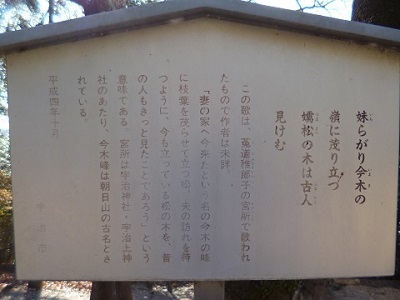 妹らがり今木の
嶺に茂り立つ
嬬松の木は古人
見けむ
この歌は、菟道稚郎子の宮所で歌われ
たもので作者は未詳。
「妻の家へ今来たという名の今木の峰
に枝葉を茂らせて立つ松、夫の訪れを待
つように、今も立っている松の木を、昔
の人もきっと見たことであろう」という
意味である。宮所は宇治神社・宇治上神
社のあたり、今木峰は朝日山の古名とさ
れている。
平成四年十月
宇治市